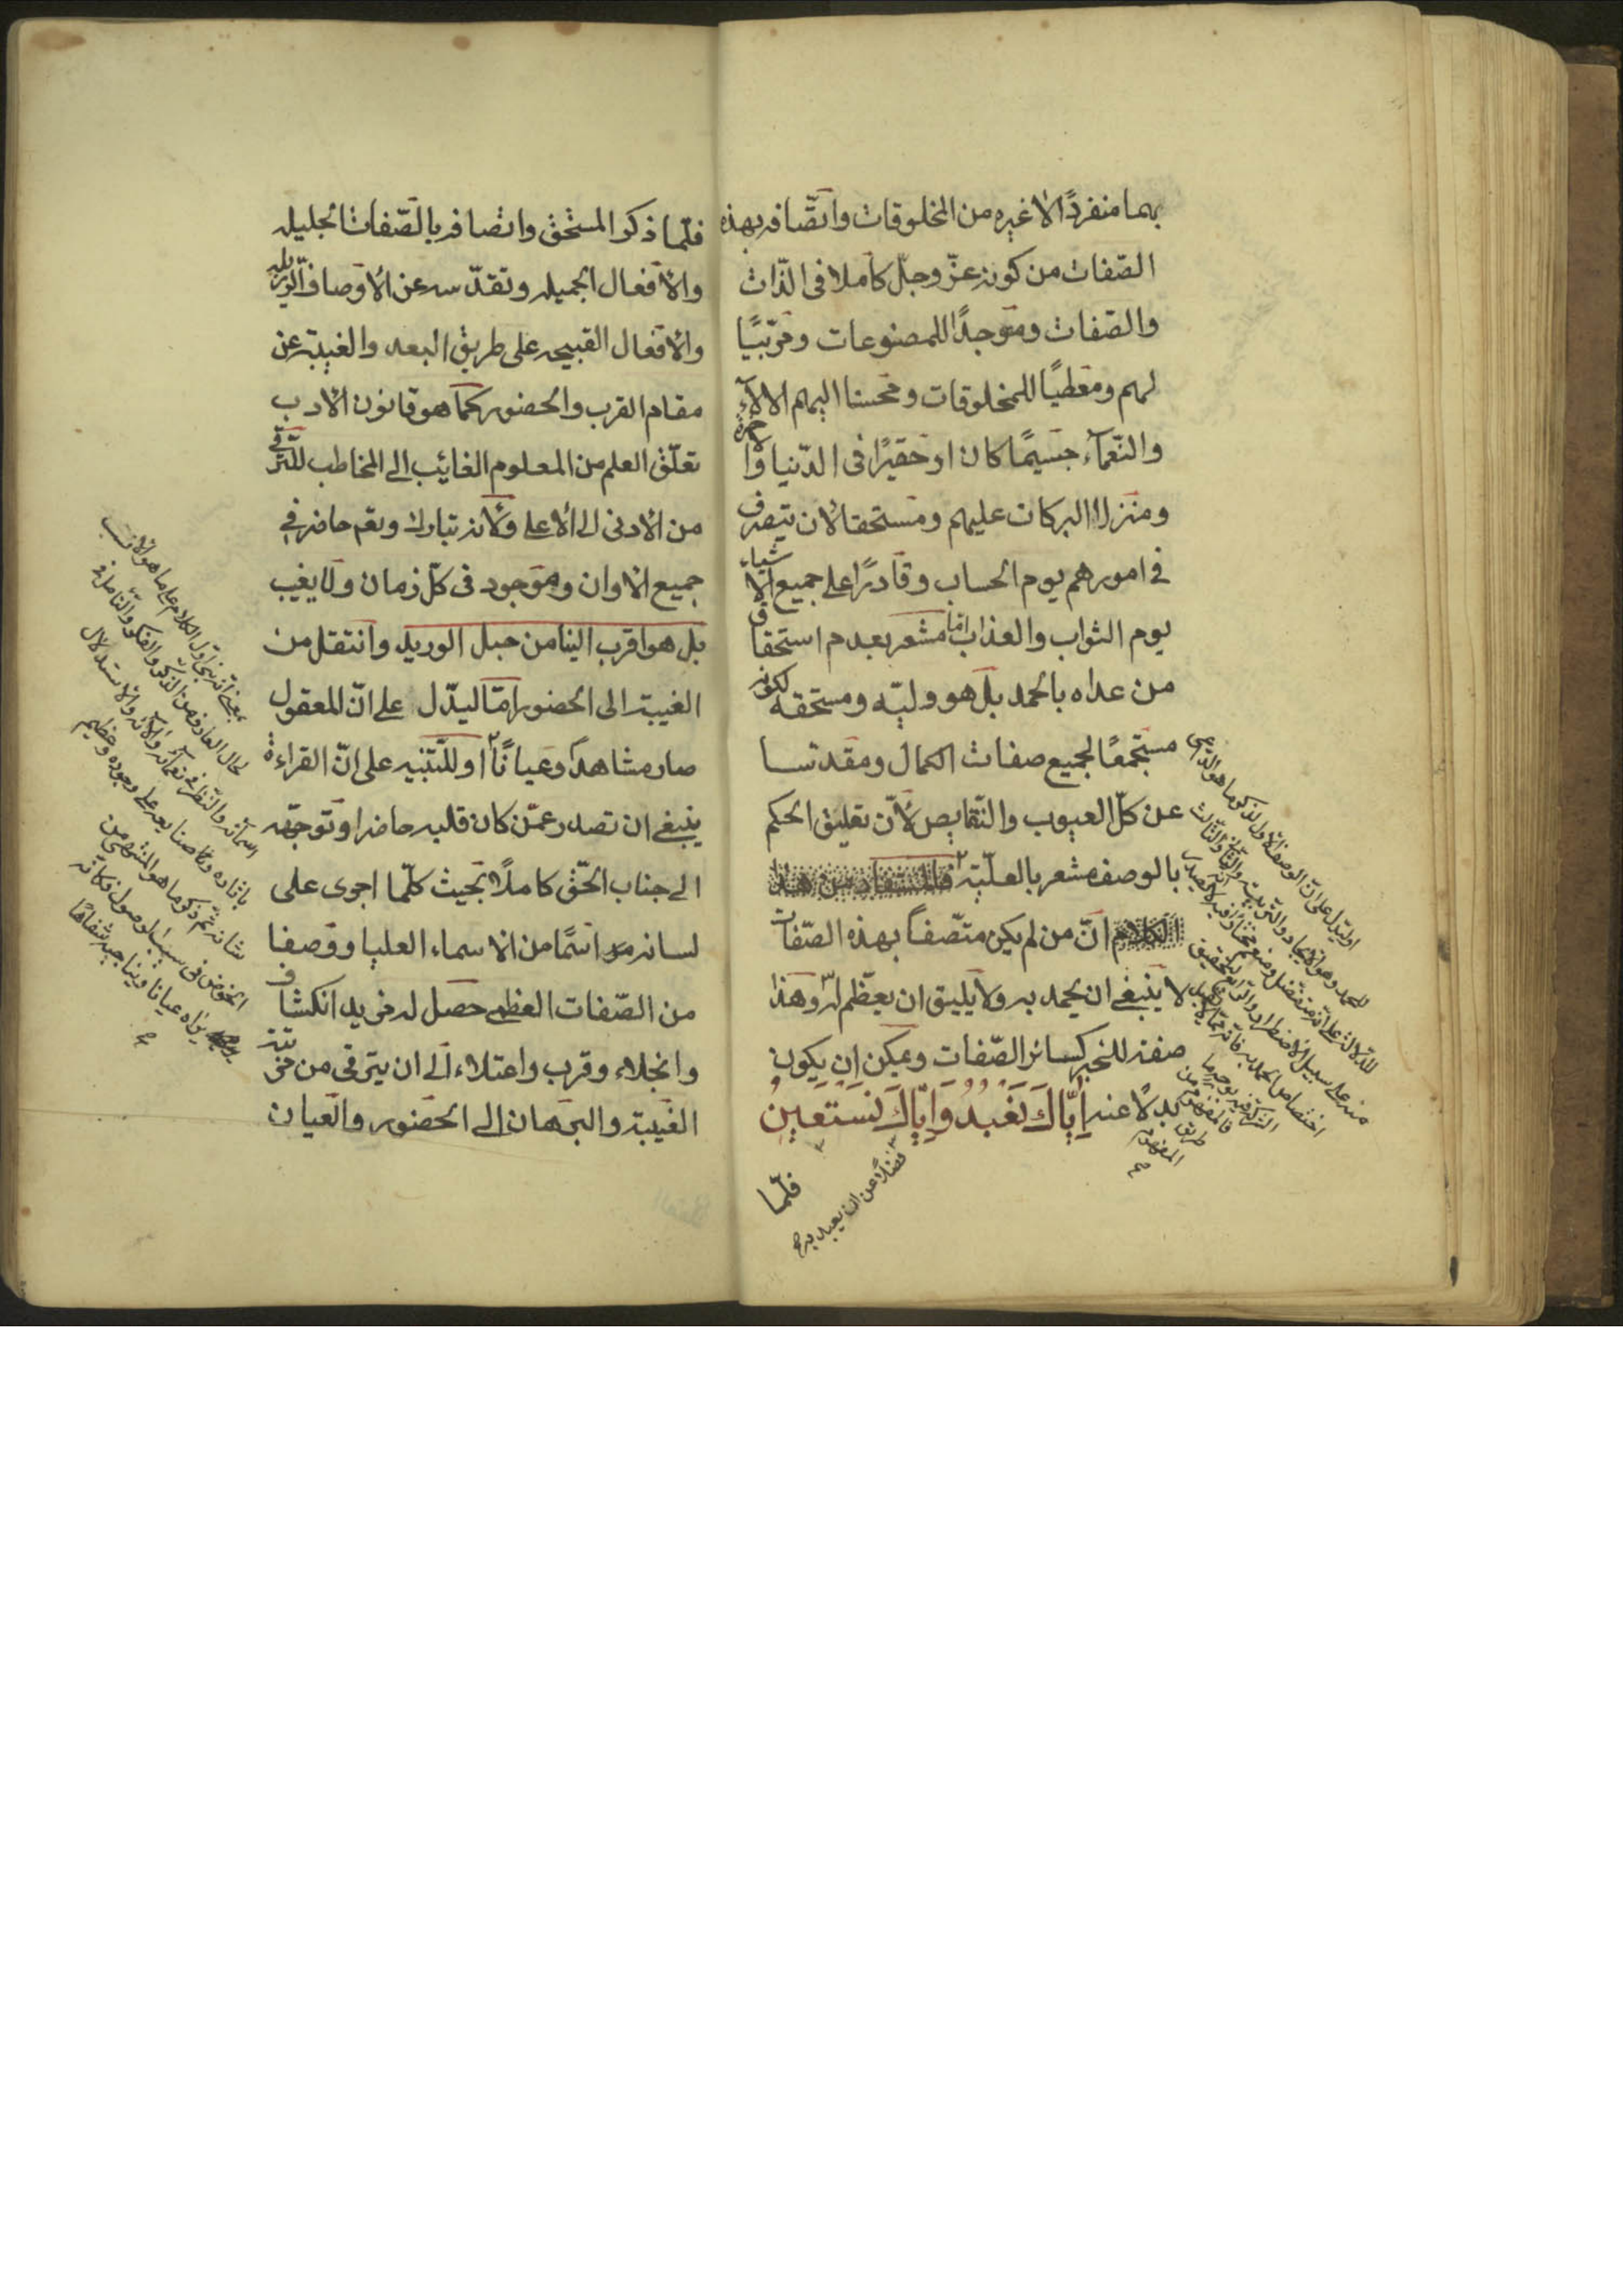 بهما منفردًا لا غيره من المخلوقات واتّصافه بهذه
الصّفات من كونه عزّ وجلّ كاملا فى الذّات
والصّفات وموجدًا للمصنوعات ومربّيًا
لهم ومعطيًا للمخلوقات ومحسنا اليهم الالآء
والنّعمآء جسيمًا كان او حقيرًا فى الدّنيا والآخرة
ومنزلا البركات عليهم ومستحقا لان يتصرف
فى امورهم يوم الحساب وقادرًا على جميع الاشياء
يوم الثواب والعذاب امّا مشعر بعدم استحقاق
من عداه بالحمد بل هو وليّه ومستحقه لكونه
مستجمعًا لجميع صفات الكمال ومقدسا
عن كلّ العيوب والنّقايص لأنّ تعليق الحكم
بالوصف مشعر بالعلّيّة فالمستفاد من هذا
الكلام انّ من لم يكن متّصفاً بهذه الصّفات
لا ينبغى ان يحمد به ولا يليق ان يعظّم له وهذا
صفة للخبر كسائر الصّفات ويمكن ان يكون
بدلًا عنه اِيّاكَ نَعْبُدُ وَاِيّاكَ نَسْتَعِينُ
فلّما
فضلًا عن ان يعبد به صح
او ليدل على انّ الوصف الاول لذكر ما هو الداعى
للحمد وهو الايجاد والتربية والثانى والثالث
للدلالة على انه متفضل
منه على سبيل الاضطرار والرابع لتحقيق
اختصاص الحمد به فانه ممّا لا يقبل
الشركة فيه بوجه ما
فالمفهوم من
طريق
المفهوم
صح
فلّما ذكر المستحق واتصافه بالصّفات الجليله
والأفعال الجميله وتقدّسه عن الأوصاف الرّذيله
والأفعال القبيحه على طريق البعد والغيبة عن
مقام القرب والحضور كما هو قانون الادب
تعلّق العلم من المعلوم الغائب الى المخاطب للتّرقّى
من الادنى الى الاعلى ولأنه تبارك وتعم حاضر فى
جميع الاوان وموجود فى كلّ زمان ولا يغيب
بل هو اقرب الينا من حبل الوريد وانتقل من
الغيبة الى الحضور امّا ليدّل على انّ المعقول
صار مشاهداً وعيانًا او للتّنبيه على انّ القراءة
ينبغى ان تصدر عمّن كان قلبه حاضرا وتوجّهه
الى جناب الحّق كاملًا بحيث كلّما اجرى على
لسانه اسمًا من الاسماء العليا ووصفا
من الصّفات العظمى حصل له مزيد انكشاف
وانجلاء وقرب واعتلاء الى ان يترقى من مرتبة
الغيبة والبرهان الى الحضور والعيان
بمعنى انه بنى اول الكلام على ما هو الانسب
لحال العارف من الذكر والفكر والتّامل فى
اسمآئه والنّظر فى نعمآئه وآلآئه والاستدلال
باثاره وصنايعه على وجوده وعظيم
شانه ثم ذكر ما هو المنتهى من
الخوض فى سبيل وصول فكانّه
يراه عيانا ويناجيه شفاهًا
صح